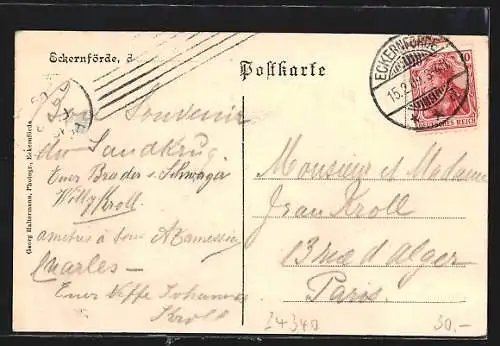 Eckernförde, d
Postkarte
ECKERNFÖRDE
15.2.05
10
DEUTSCHES REICH
Bon Souvenir
du Sandkrug
Euer Bruder u. Schwager
Willy Kroll.
amitiés à
Charles —
Euer Neffe Johannes
Kroll
Georg Haltermann, Photogr., Eckernförde
Monsieur et Madame
Jean Kroll
Paris.
24340
30.-